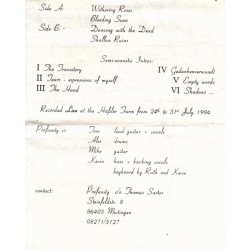 Side A: Withering Roses
Bleeding Sons
Side B: Dancing with the Dead
Shallow Ruins
Semi-acoustic Intros:
I The Transitory IV Gedankenverwandt
II Torn - expressions of myself V Empty words
III The Hand VI Shadows ...
Recorded Live at the Häfiler Farm from 24th to 31st July 1994
Profanity is: Tom lead guitar + vocals
Alex drums
Mike guitar
Kevin bass + backing vocals
keyboard by Ruth and Kevin
contact: Profanity c/o Thomas Sartor
Steinfeldstr. 8
86405 Meitingen
08271/5127